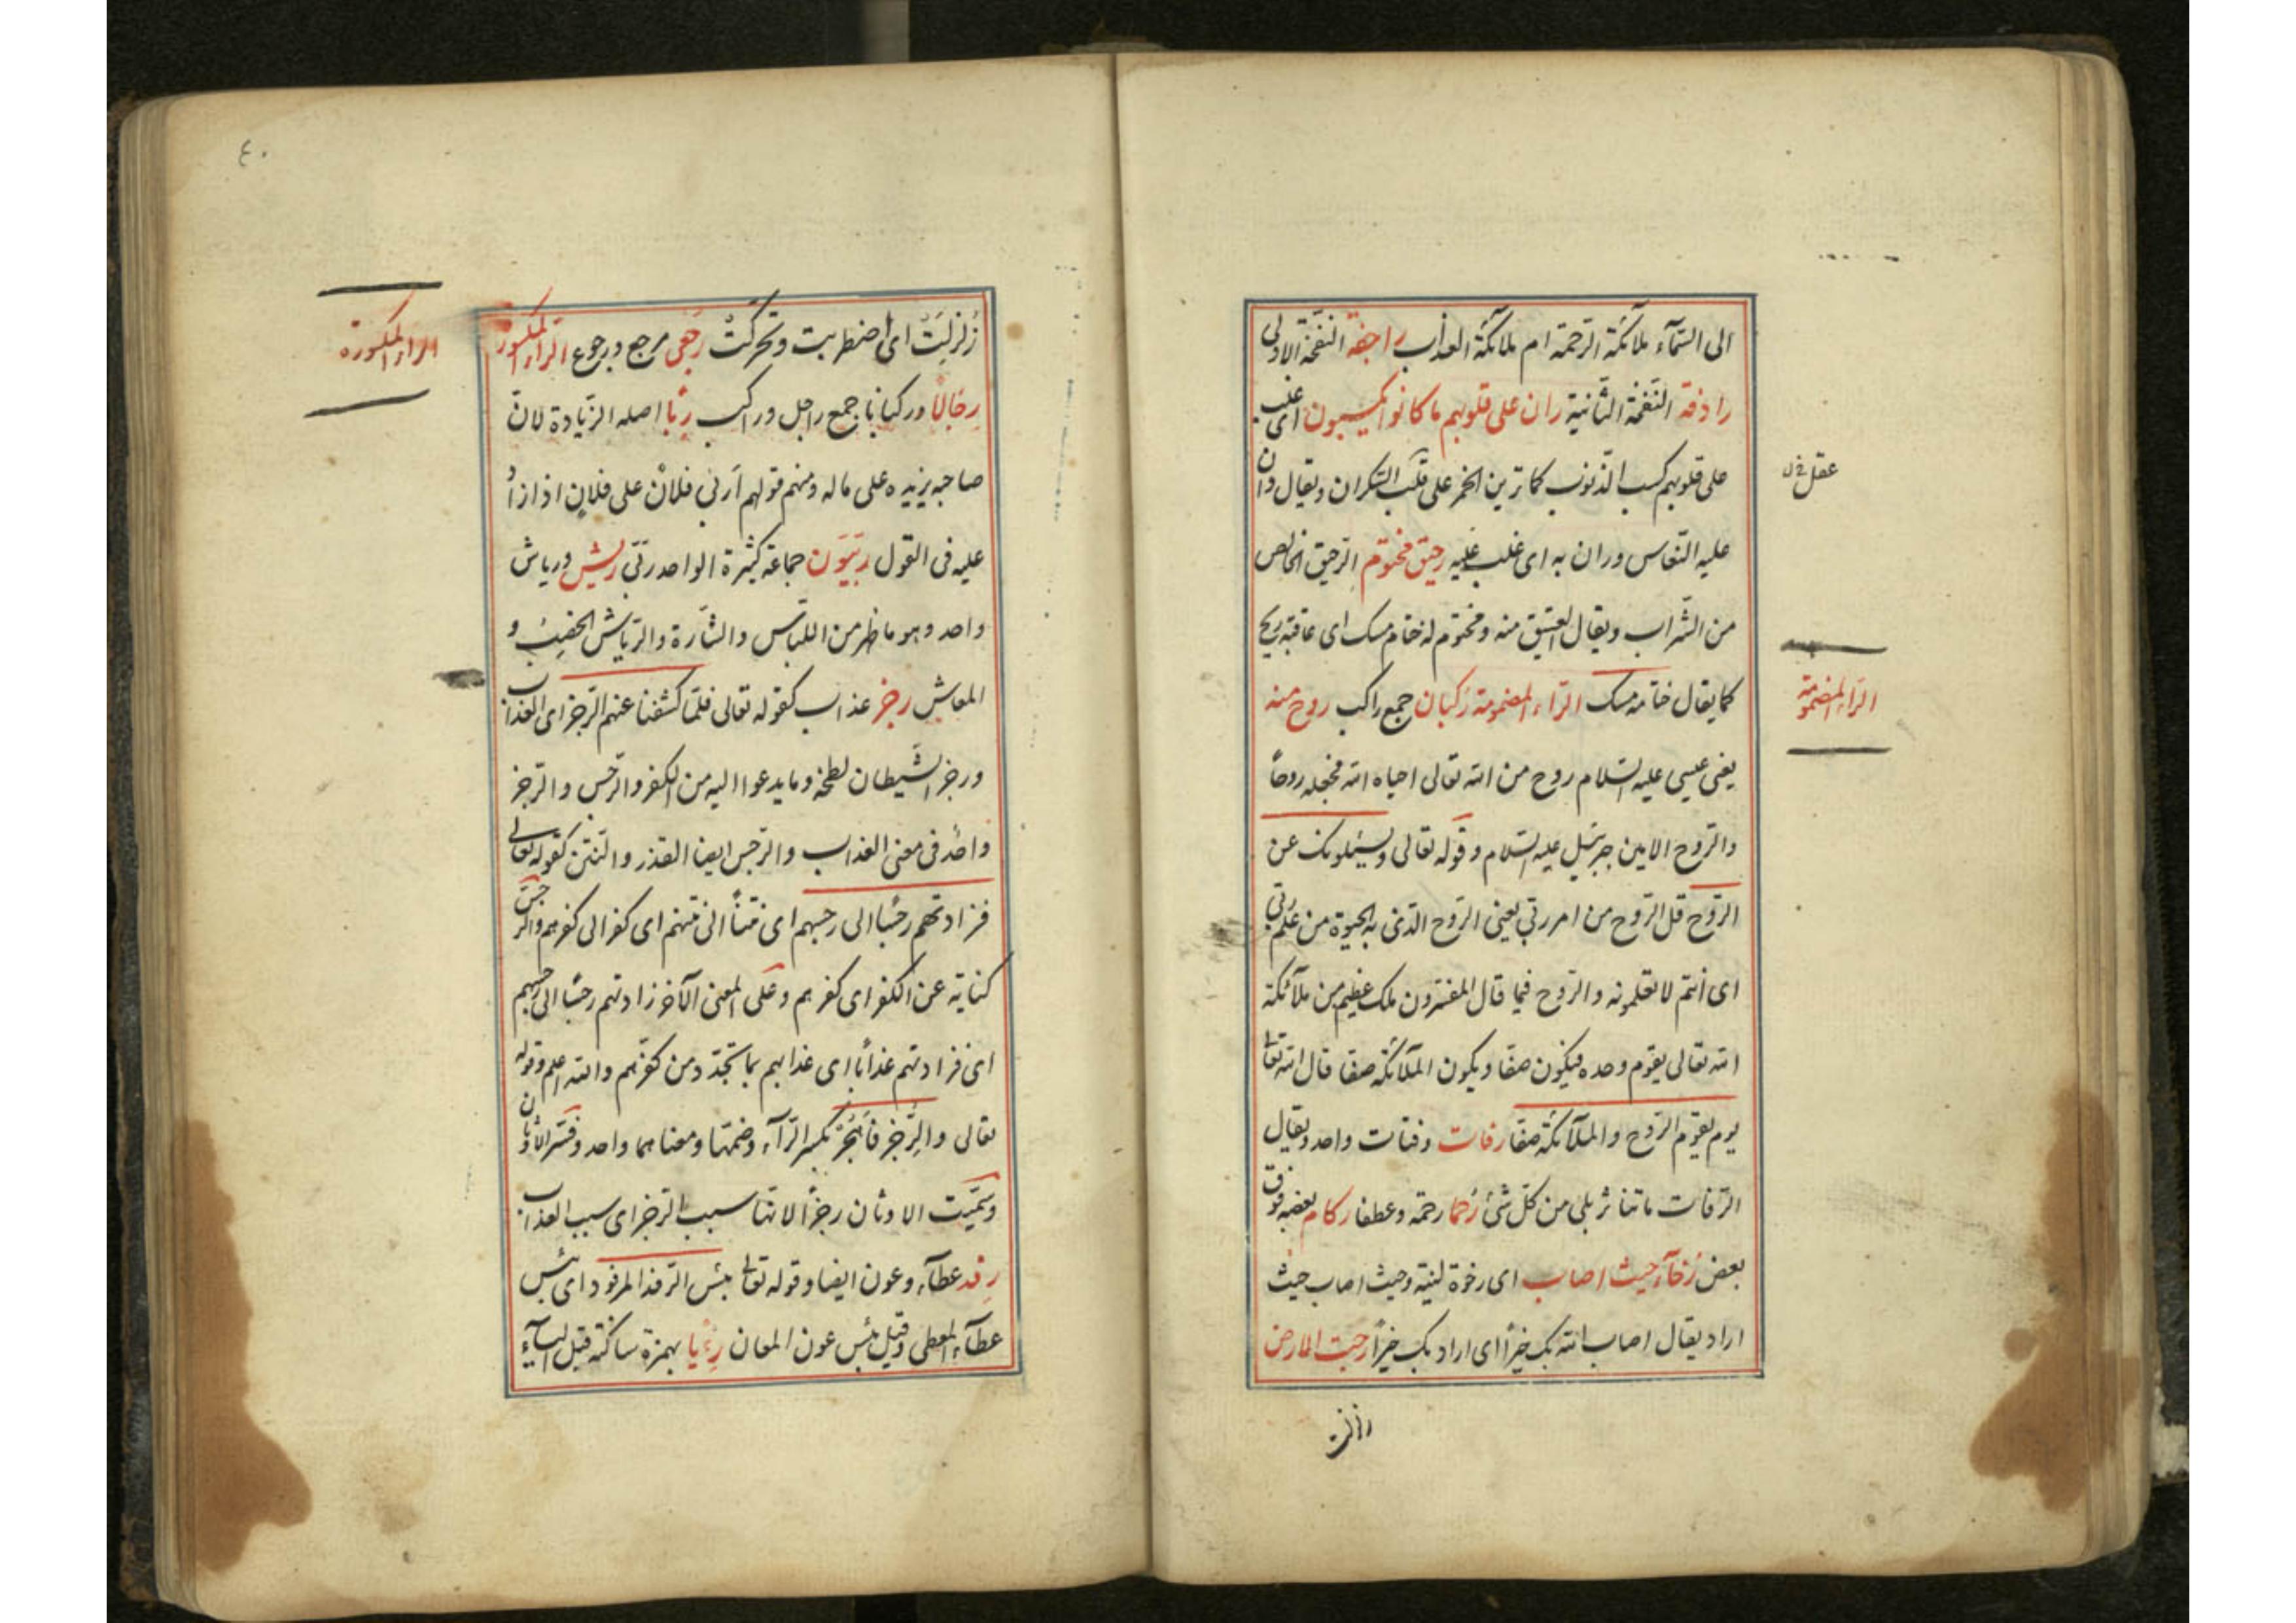 الى السّمآء ملآئكة الرّحمة ام ملآئكة العذاب راجفة النّفخة الاولى
رادفة النّفخة الثّانية ران على قلوبهم ما كانوا يكسبون اى غلب
على قلوبهم كسب الذّنوب كما ترين الخمر على قلب السّكران ويقال ران
عقل
عليه النّعاس وران به اى غلب عليه رحيق مختوم الرّحيق الخالص
من الشّراب ويقال العتيق منه ومختوم له ختام مسك اى عاقبة ريح
كما يقال خاتمه مسك الرّاء المضمومة ركبان جمع راكب روح منه
الرّاء المضمومة
يعنى عيسى عليه السّلام روح من الله تعالى احياه الله فجعله روحًا
والرّوح الامين جبرئيل عليه السّلام وقوله تعالى ويسئلونك عن
الرّوح قل الرّوح من امر ربّى يعنى الرّوح الّذى به الحيوة من علم ربّى
اى انتم لا تعلمونه والرّوح فيما قال المفسّرون ملك عظيم من ملآئكة
الله تعالى يقوم وحده فيكون صفّا ويكون الملآئكة صفّا قال الله تعالى
يوم يقوم الرّوح والملآئكة صفّا رفات وفتات واحد ويقال
الرّفات ما تناثر بلى من كلّ شئ رُحما رحمة وعطفا ركام بعضه فوق
بعض رُخآء حيث اصاب اى رخوة لينة وحيث اصاب حيث
اراد يقال اصاب الله بك خيرًا اى اراد بك خيرًا رجت الارض
زلزلت
٤٠
زُلزِلَتْ اى اضطربت وتحركتْ رُجْعى مرجع ورجوع الرّاء المكسورة
الرّاء المكسورة
رِجَالًا وركبانا جمع راجل وراكب رِبًا اصله الزّيادة لانّ
صاحبه يزيده على ماله ومنهم قولهم اَربى فلانٌ على فلانٍ اذا زادُ
عليه فى القول ربّيّون جماعة كثيرة الواحد ربّى ريش ورياش
واحد وهو ما ظهر من اللباس والشّارة والرّياش الخصب و
المعاش رجز عذاب كقوله تعالى فلمّا كشفنا عنهم الرّجز اى العذاب
ورجز الشّيطان لطخه وما يدعوا اليه من الكفر والرّجس والرّجز
واحد فى معنى العذاب والرّجس ايضا القذر والنّتن كقوله تعالى
فزادتهم رجسًا الى رجسهم اى نتنًا الى نتنهم اى كفرا الى كفرهم والرجس
كناية عن الكفر اى كفرهم وعلى المعنى الآخر زادتهم رجسًا الى رجسهم
اى فزادتهم عذابًا اى عذابهم بما تجدّد من كفرهم والله اعلم وقوله
تعالى والرُّجز فَاهْجُرْ بكسر الرّآء وضمّها ومعناهما واحد وفسّر الاوثان
وسمّيت الاوثان رجزًا لانّها سبب الرّجز اى سبب العذاب
رِفد عطآء وعون ايضا وقوله تعالى بئس الرّفد المرفود اى بئس
عطآء المعطى وقيل بئس عون المعان رِءْيا بهمزة ساكنة قبل اليآء